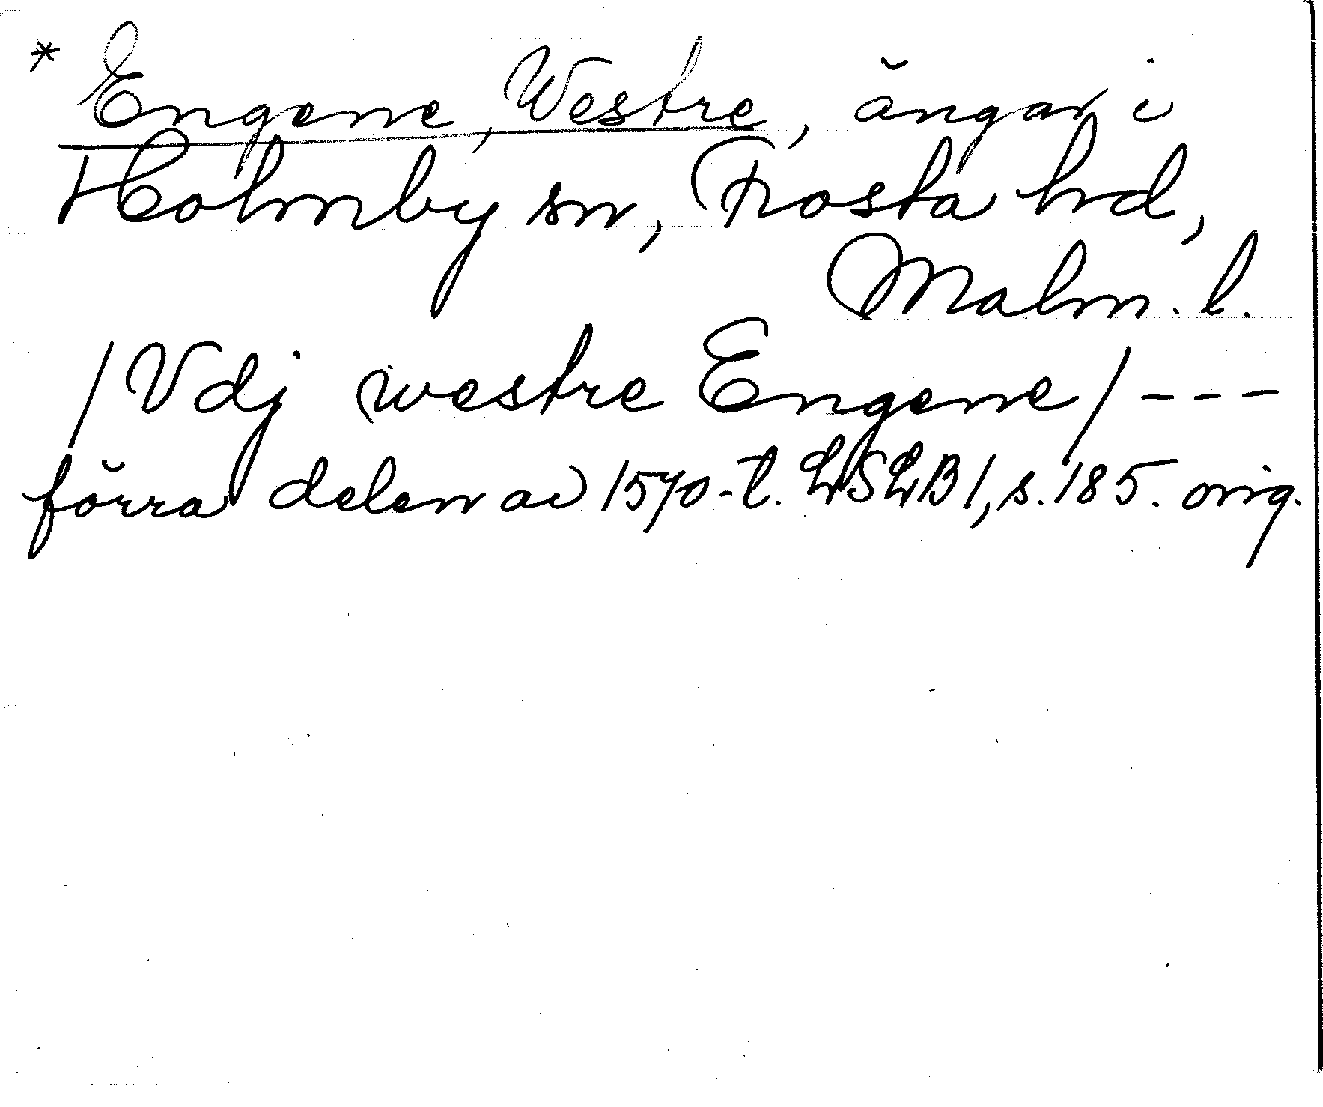 * Engene, Westre, ängar i
Holmby sn, Frosta hd,
Malm. l.
/Vdj westre Engene/ ---
förra delen av 1570-t. LSLB1, s. 185. orig.